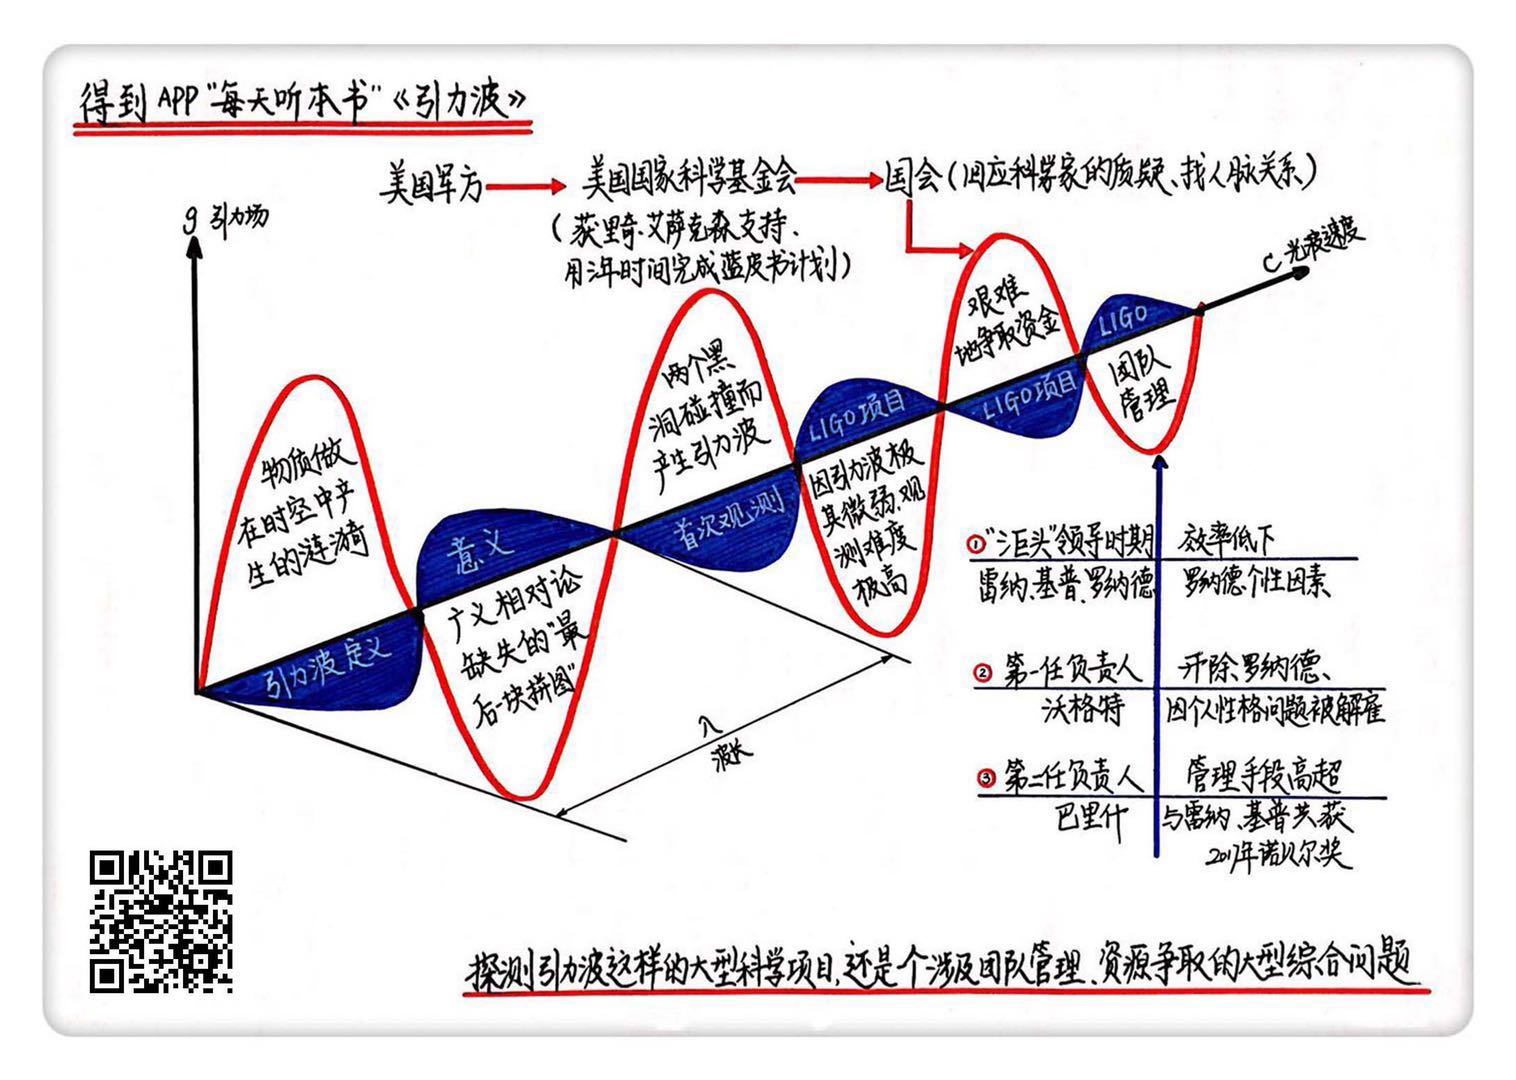 得到APP"每天听本书"《引力波》
美国军方 美国国家科学基金会 国会(回应科学家的质疑、找人脉关系)
(获里奇·艾萨克森支持、
用3年时间完成蓝皮书计划)
g 引力场
C 光波速度
物质做
在时空中产
生的涟漪
引力波定义
意义
广义相对论
缺失的"最
后一块拼图"
两个黑
洞碰撞而
产生引力波
首次观测
LIGO项目
因引力波极
其微弱、观
测难度
极高
艰难
地争取资金
LIGO项目
LIGO
团队
管理
λ
波长
① "三巨头"领导时期 效率低下
雷纳、基普、罗纳德 罗纳德个性因素
② 第一任负责人 开除罗纳德、
沃格特 因个人性格问题被解雇
③ 第二任负责人 管理手段高超
巴里什 与雷纳、基普共获
2017年诺贝尔奖
探测引力波这样的大型科学项目,还是个涉及团队管理、资源争取的大型综合问题